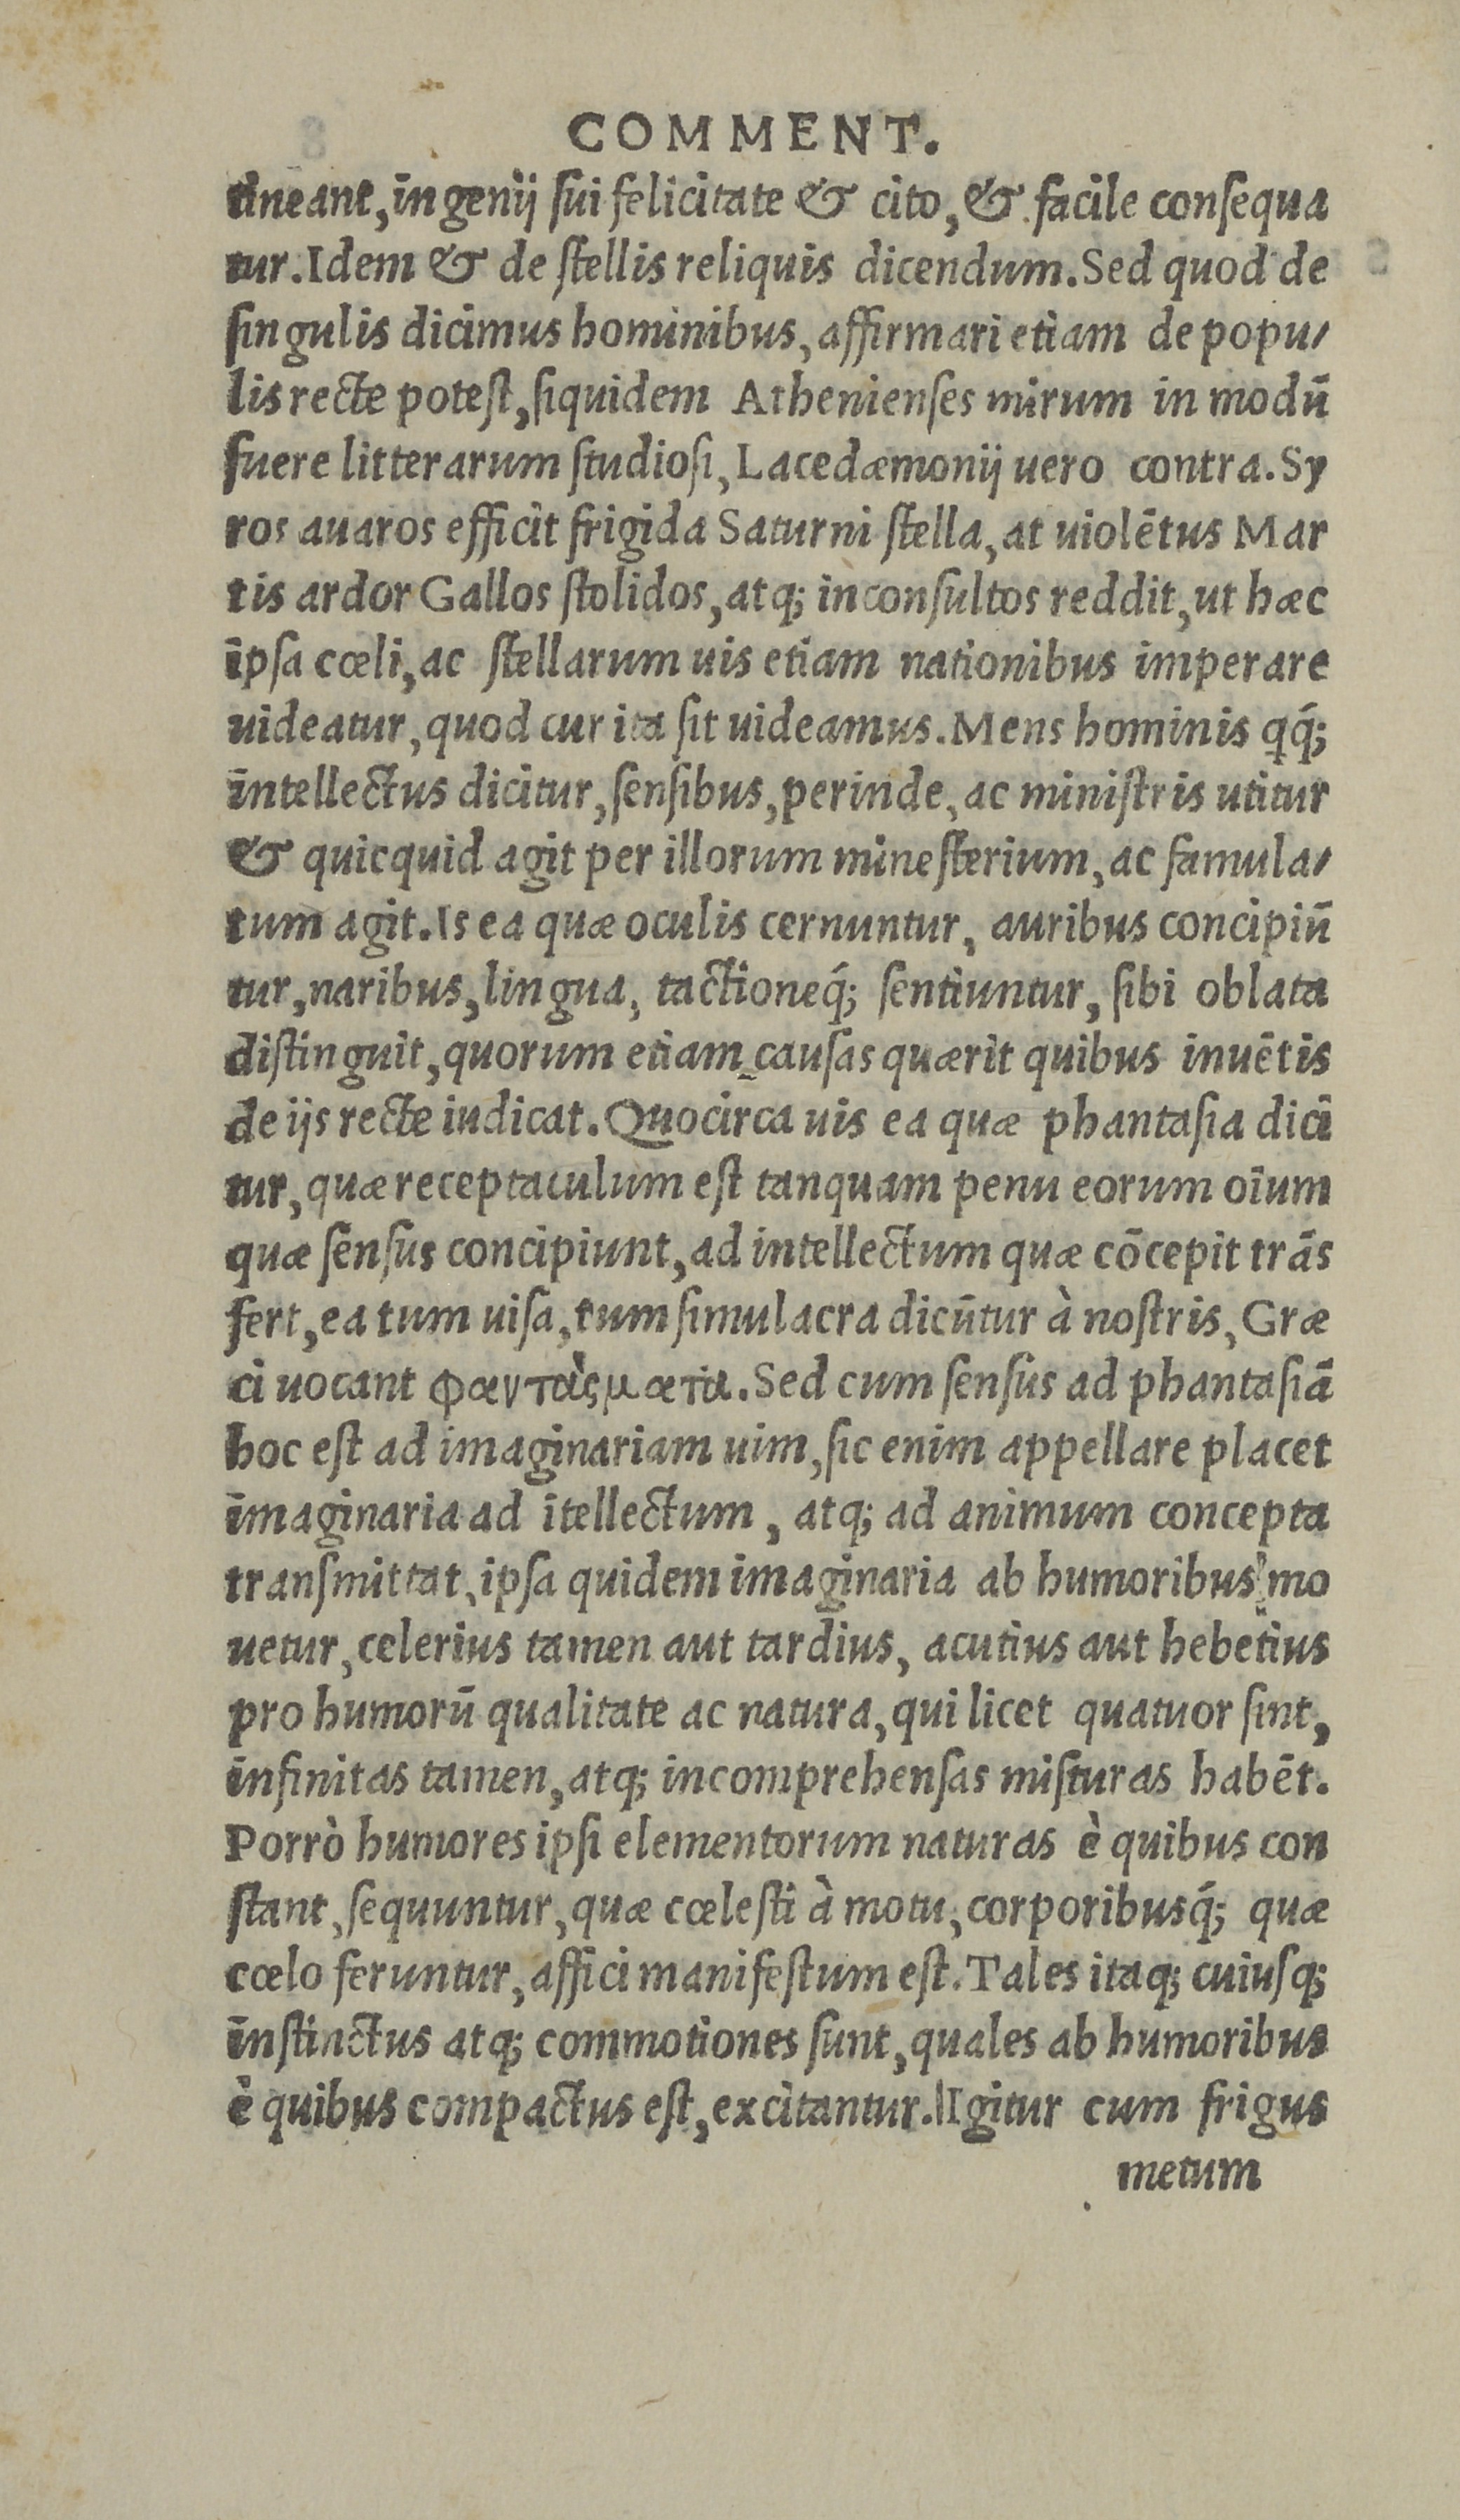 COMMENT.
tineant, ingenij sui felicitate & cito, & facile consequa
tur. Idem & de stellis reliquis dicendum. Sed quod de
singulis dicimus hominibus, affirmari etiam de popu/
lis recte potest, siquidem Athenienses mirum in modū
fuere litterarum studiosi, Lacedæmonij uero contra. Sy
ros auaros efficit frigida Saturni stella, at uiolētus Mar
tis ardor Gallos stolidos, atq; inconsultos reddit, ut hæc
ipsa cœli, ac stellarum uis etiam nationibus imperare
uideatur, quod cur ita sit uideamus. Mens hominis qq́;
intellectus dicitur, sensibus, perinde, ac ministris utitur
& quicquid agit per illorum minesterium, ac famula/
tum agit. Is ea quæ oculis cernuntur, auribus concipiū
tur, naribus, lingua, tactioneq́; sentiuntur, sibi oblata
distinguit, quorum etiam causas quærit quibus inuētis
de ijs recte iudicat. Quocirca uis ea quæ phantasia dici
tur, quæ receptaculum est tanquam penu eorum oīum
quæ sensus concipiunt, ad intellectum quæ cōcepit trās
fert, ea tum uisa, tum simulacra dicūtur à nostris, Græ
ci uocant φαντὰςματα. Sed cum sensus ad phantasiā
hoc est ad imaginariam uim, sic enim appellare placet
imaginaria ad ītellectum, atq; ad animum concepta
transmittat, ipsa quidem imaginaria ab humoribus mo
uetur, celerius tamen aut tardius, acutius aut hebetius
pro humorū qualitate ac natura, qui licet quatuor sint,
infinitas tamen, atq; incomprehensas misturas habēt.
Porrò humores ipsi elementorum naturas è quibus con
stant, sequuntur, quæ cœlesti à motu, corporibusq́; quæ
cœlo feruntur, affici manifestum est. Tales itaq; cuiusq;
instinctus atq; commotiones sunt, quales ab humoribus
è quibus compactus est, excitantur. Igitur cum frigus
metum